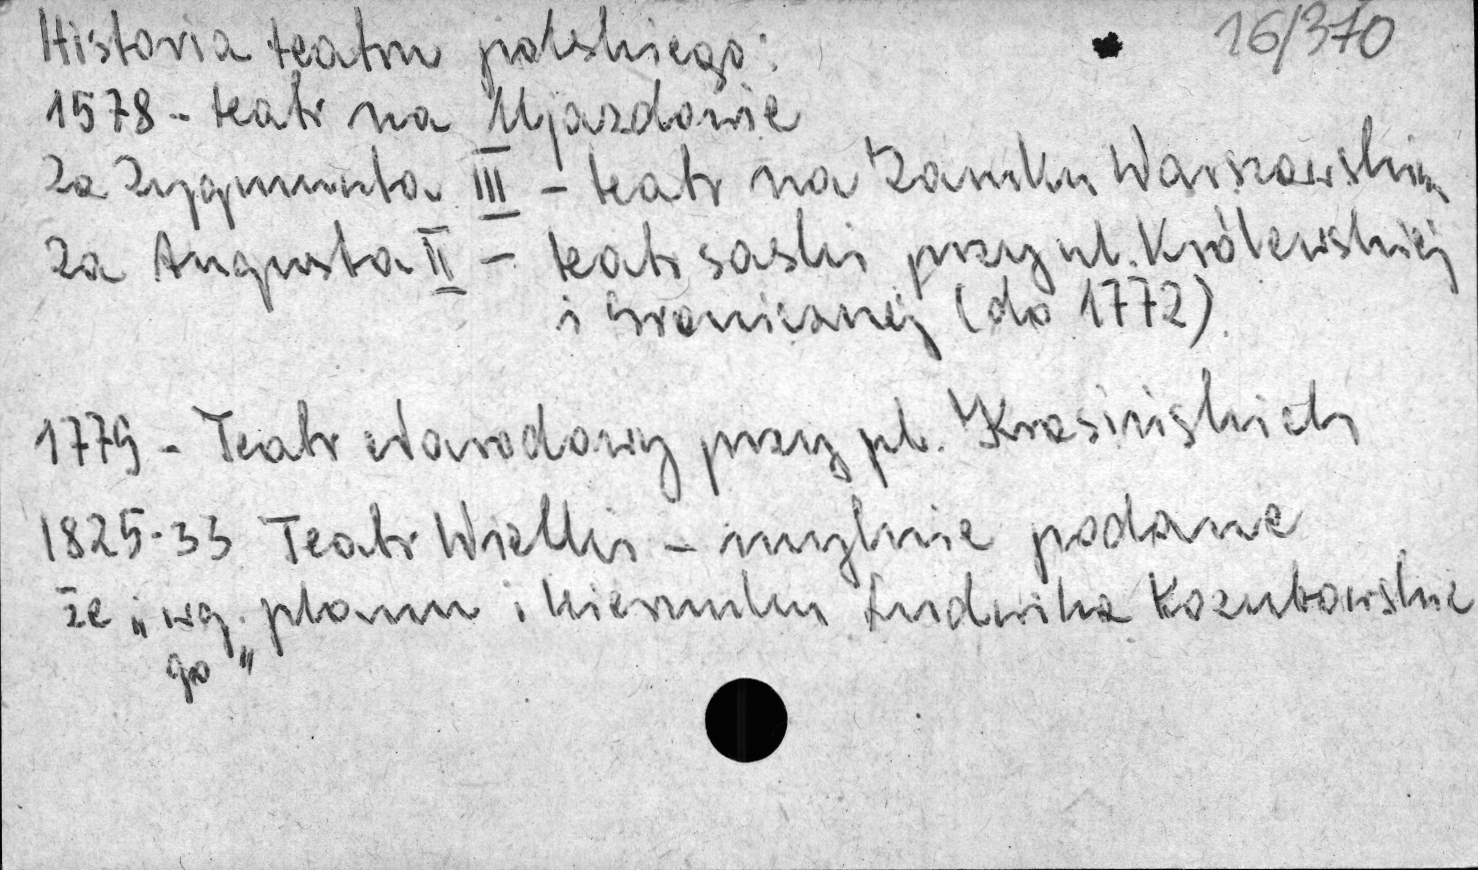 16/370
Historia teatru polskiego:
1578 - teatr na Ujazdowie
Za Zygmunta III - teatr na Zamku Warszawskim
Za Augusta II - teatr saski przy ul. Królewskiej
i Granicznej (do 1772)
1779 - Teatr Narodowy przy pl. Krasińskich
1825-33 Teatr Wielki - mylnie podane
że "wg. planu i kierunku Ludwika Kozubowskie
go"